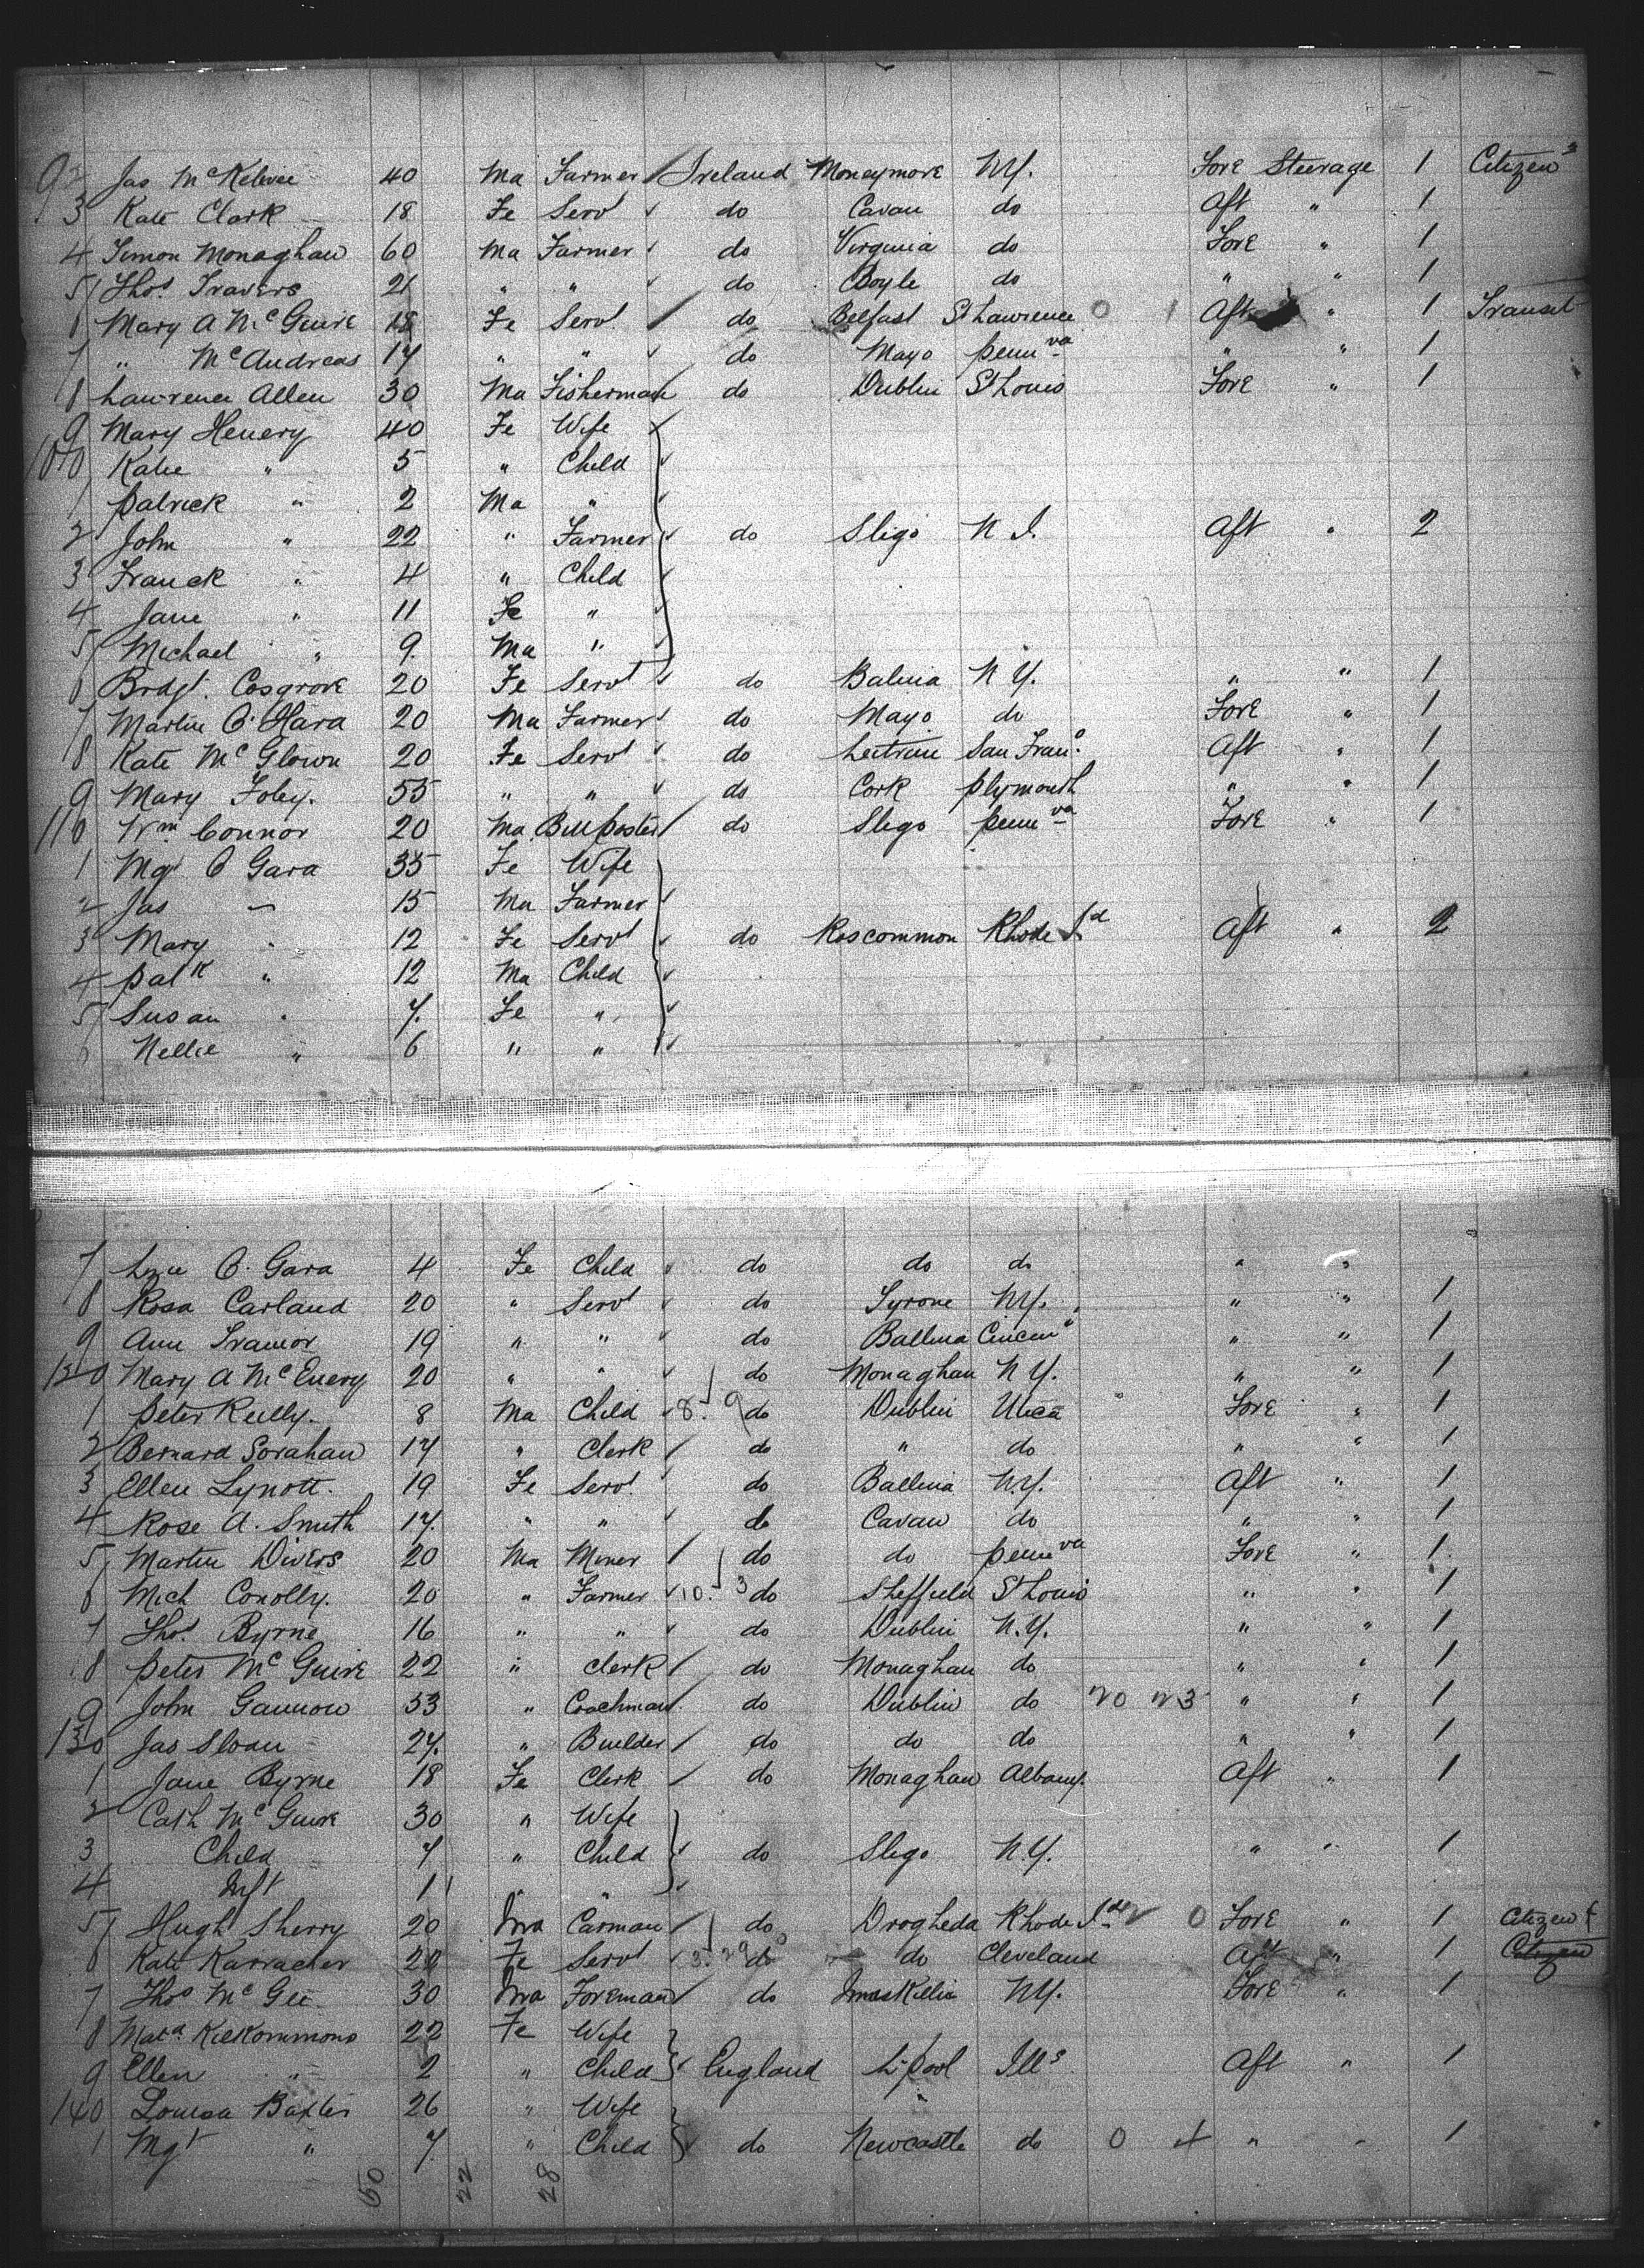 92 Jas McKelvie 40 Ma Farmer Ireland Moneymore NY. Fore Steerage 1 Citizen
3 Kate Clark 18 Fe Servt do Cavan do Aft " 1
4 Simon Monaghan 60 Ma Farmer do Virginia do Fore " 1
5 Thos. Travers 21 " " do Boyle do " " 1
6 Mary A McGuire 18 Fe Servt do Belfast St Lawrence 0 1 Aft " 1 Transit
7 " McAndreas 17 " " do Mayo Pennva " " 1
8 Lawrence Allen 30 Ma Fisherman do Dublin St Louis Fore " 1
9 Mary Henery 40 Fe Wife
100 Katie " 5 " Child
1 Patrick " 2 Ma "
2 John " 22 " Farmer do Sligo N J. Aft " 2
3 Franck " 4 " Child
4 Jane " 11 Fe "
5 Michael " 9 Ma "
6 Brdgt. Cosgrove 20 Fe Servt do Balina N Y. " " 1
7 Martin O'Hara 20 Ma Farmer do Mayo do Fore " 1
8 Kate McGlown 20 Fe Servt do Leitrim San Frano. Aft " 1
9 Mary Foley. 55 " " do Cork Plymouth " " 1
110 Wm Connor 20 Ma Bill Poster do Sligo Pennva Fore " 1
1 Mgt O Gara 35 Fe Wife
2 Jas " 15 Ma Farmer
3 Mary " 12 Fe Servt do Roscommon Rhode Id Aft " 2
4 Patk " 12 Ma Child
5 Susan " 7. Fe "
6 Nellie " 6 " "
7 Lizie O. Gara 4 Fe Child do do do " "
8 Rosa Carland 20 " Servt do Tyrone NY. " " 1
9 Ann Tramor 19 " " do Ballina Cincin " " 1
120 Mary A McEnery 20 " " do Monaghan N Y. " " 1
1 Peter Reilly. 8 Ma Child 8. 9 do Dublin Utica " Fore " 1
2 Bernard Sorahan 17 " Clerk do " do " " 1
3 Ellen Lynott. 19 Fe Servt do Ballina NY. Aft " 1
4 Rose A. Smith 17. " " do Cavan do " " 1
5 Martin Divers 20 Ma Miner do do Pennva Fore " 1
6 Mich Conolly. 20 " Farmer 10. 3 do Sheffield St Louis " " 1
7 Thos. Byrne 16 " " do Dublin N.Y. " " 1
8 Peter McGuire 22 " Clerk do Monaghan do " " 1
9 John Gannon 53 " Coachman do Dublin do 20 23 " " 1
130 Jas Sloan 27. " Builder do do do " " 1
1 Jane Byrne 18 Fe Clerk do Monaghan Albany. Aft " 1
2 Cath McGuire 30 " Wife
3 Child 7 " Child do Sligo N.Y. " " 1
4 Inft 1 " "
5 Hugh Sherry 20 Ma Carman do Drogheda Rhode Id 0 Fore " 1 Citizen
6 Kate Karracher 22 Fe Servt 3. 29 do do Cleveland Aft " 1 Citizen
7 Thos McGee 30 Ma Foreman do Inniskillin NY. Fore " 1
8 Mata. Kilkommons 22 Fe Wife
9 Ellen " 2 " Child England L'pool Ills Aft " 1
140 Louisa Baxter 26 " Wife
1 Mgt " 7. " Child do Newcastle do 0 4 " " 1
50 22 28